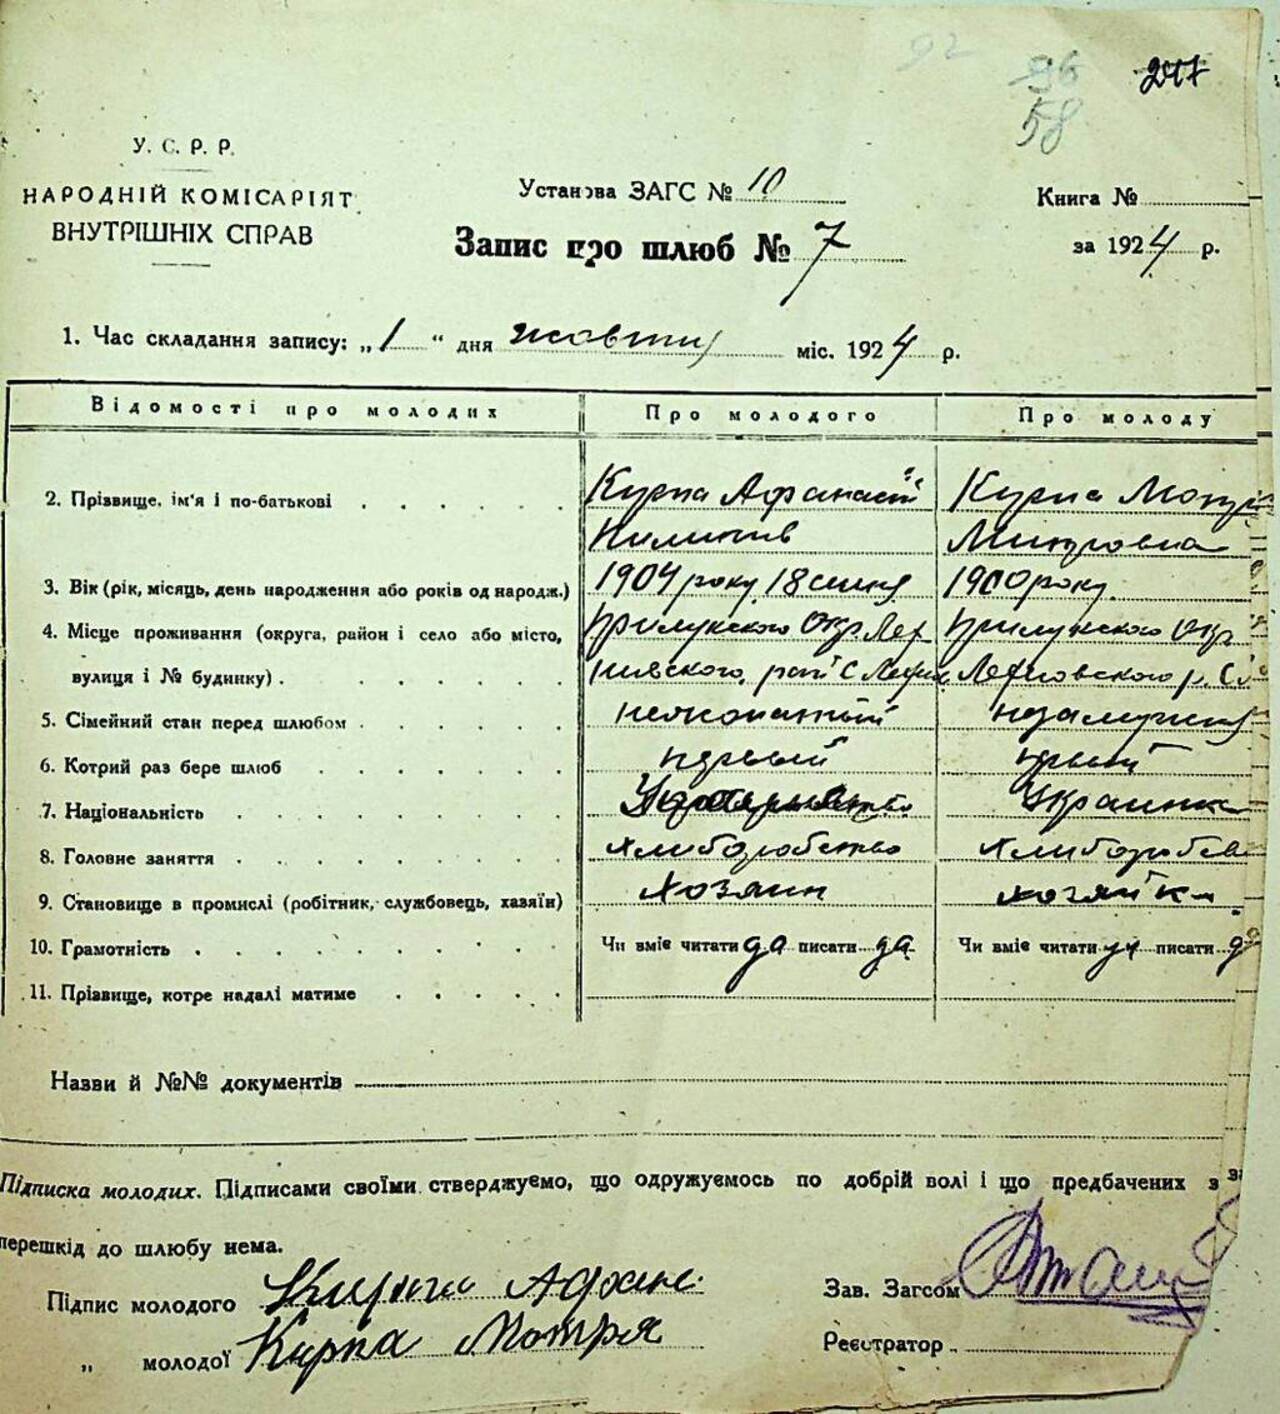 92
96
58
247
У. С. Р. Р.
НАРОДНІЙ КОМІСАРІЯТ
ВНУТРІШНІХ СПРАВ
Установа ЗАГС № 10
Запис про шлюб № 7
Книга №
за 1924 р.
1. Час складання запису: „1“ дня жовтня міс. 1924 р.
Відомості про молодих Про молодого Про молоду
2. Прізвище, ім'я і по-батькові Курпа Афанасій Курпа Мотря
Митровна
3. Вік (рік, місяць, день народження або років од народж.) 1904 року 18 1900 року
4. Місце проживання (округа, район і село або місто, Прилукского Окр. Прилукского Окр
вулиця і № будинку)
5. Сімейний стан перед шлюбом
6. Котрий раз бере шлюб первый
7. Національність Украинка
8. Головне заняття хлиборобство
9. Становище в промислі (робітник, службовець, хазяїн) хозяин хозяйка
10. Грамотність Чи вміє читати да писати да Чи вміє читати писати да
11. Прізвище, котре надалі матиме
Назви й №№ документів
Підписка молодих. Підписами своїми стверджуємо, що одружуємось по добрій волі і що предбачених з
перешкід до шлюбу нема.
Підпис молодого Афан
Зав. Загсом
„ молодої Курпа Мотря
Реєстратор